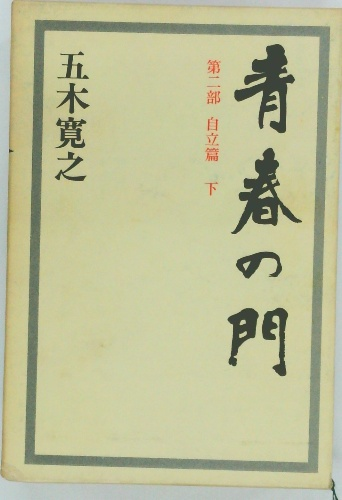 青春の門
第二部 自立篇 下
五木寛之